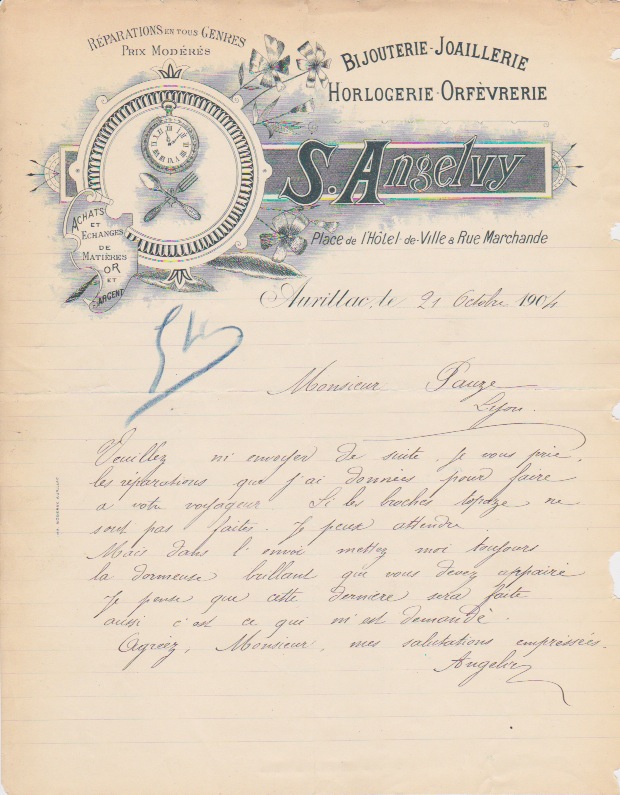 RÉPARATIONS EN TOUS GENRES
PRIX MODÉRÉS
BIJOUTERIE-JOAILLERIE
HORLOGERIE-ORFÈVRERIE
S. Angelvy
ACHATS
ET
ECHANGES
DE
MATIÈRES
OR
ET
ARGENT
Place de l'Hôtel-de-Ville & Rue Marchande
Aurillac, le 21 Octobre 1904
Monsieur Pauze
Lyon.
Veuillez m'envoyer de suite, je vous prie,
les réparations que j'ai données pour faire
a votre voyageur. Si les broches topaze ne
sont pas faites. Je peux attendre
Mais dans l'envoi mettez moi toujours
la dormeuse brillant que vous devez appairé
Je pense que cette dernière sera faite
aussi c'est ce qui m'est demandé.
Agréez, Monsieur, mes salutations empressées.